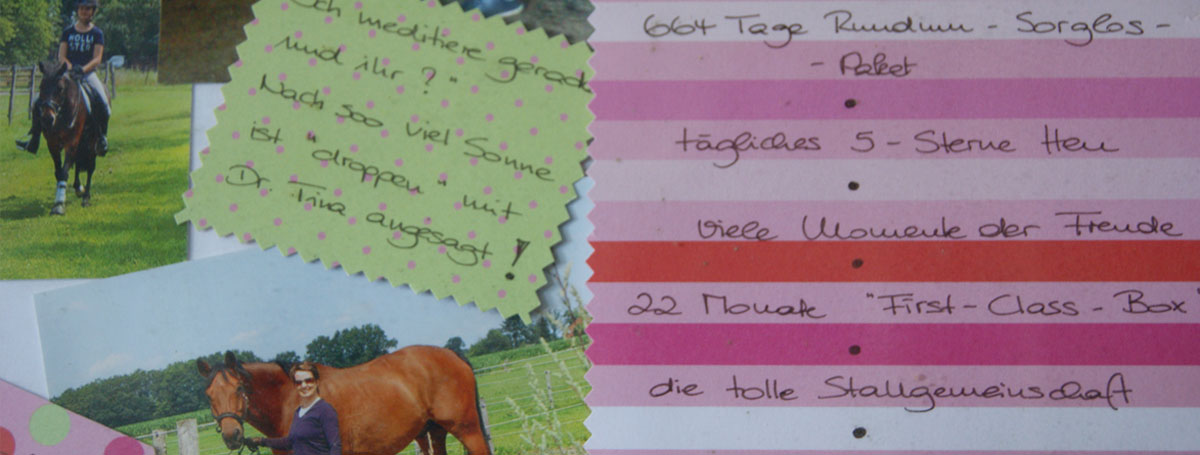 HOLLI
STER
"Ich meditiere gerade
und ihr ?"
Nach soo viel Sonne
ist "droppen" mit
Dr. Tina angesagt !
664 Tage Rundum - Sorglos -
- Paket
•
tägliches 5 - Sterne Heu
•
viele Momente der Freude
•
22 Monate "First - Class - Box"
•
die tolle Stallgemeinschaft
•